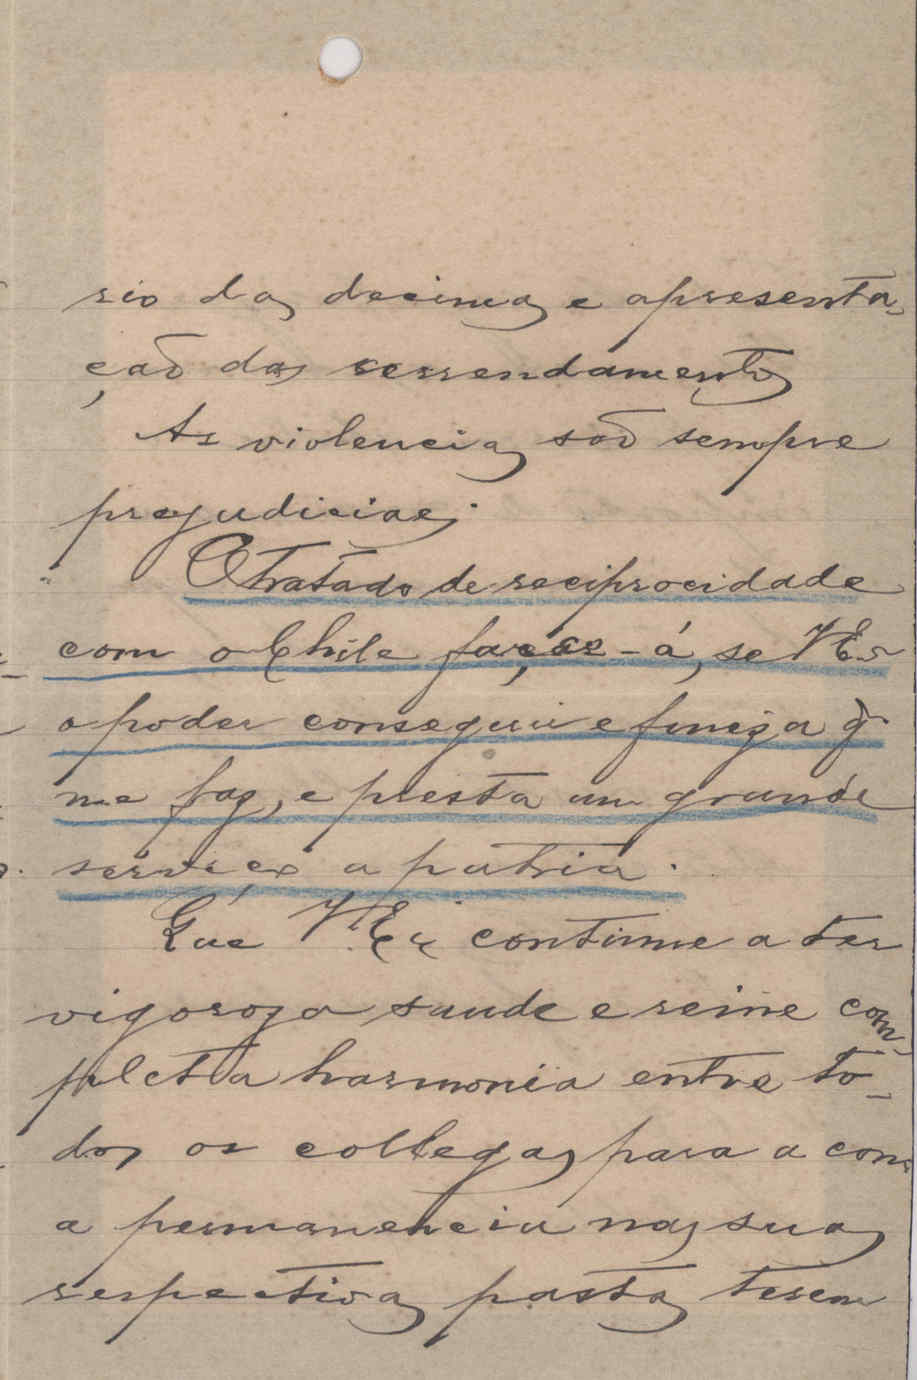 rio das decimas e apresenta-
ção dos arrendamentos
As violencias são sempre
prejudiciaes.
O tratado de reciprocidade
com o Chile faça-se á, se V Ex
o poder conseguir e fineza q̃
me faz, e presta um grande
serviço a patria.
Que V Ex continue a ter
vigoroza saude e reine com-
pleta harmonia entre to-
dos os collegas para a com
a permanencia nas suas
respectivas pastas